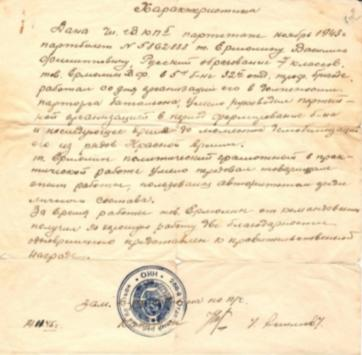 Характеристика
Дана чл. ВКП/б партстаж с ноября 1943г.
партбилет № 5162111 т. Ермолину Василию
Русский образование 7 классов.
тов. Ермолин В.Ф. в 5м б-не
работал со дня организации его в должности
парторга батальона, умело руководил партий-
ной организацией в период формирования б-на
и последующее время до момента демобилизации
его из рядов Красной армии.
т. Ермолин политически грамотный в прак-
тической работе умело передовал товарищам
опыт работы, пользовался авторитетом среди
личного состава.
За время работы тов. Ермолин от командования
получил за хорошую работу две благодарности
представлен к правительственной
награде.
Зам. по п/ч.